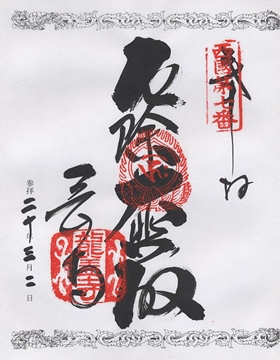 西國第七番
奉拝
厄除大悲殿
岡寺
龍蓋寺
参拝 二十年三月二日